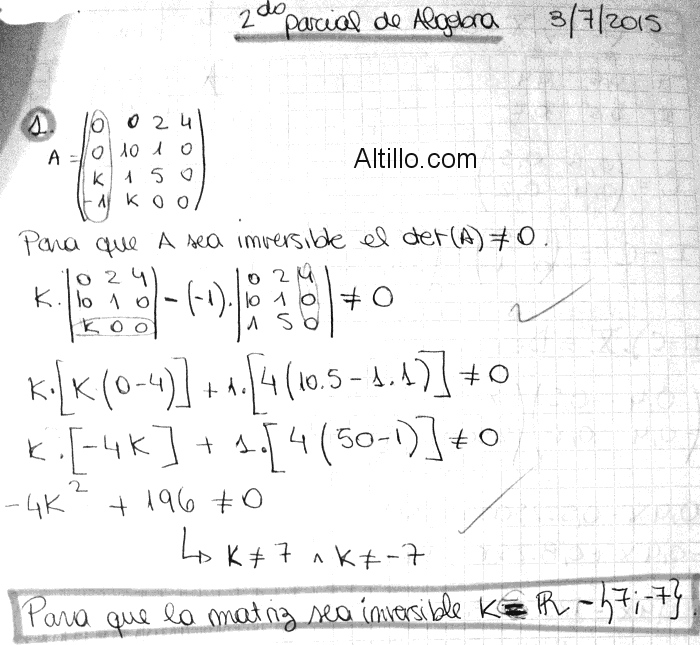 2do parcial de Algebra 3/7/2015
1.
A = (0 0 2 4
0 10 1 0
K 1 5 0
-1 K 0 0)
Altillo.com
Para que A sea inversible el det(A) ≠ 0.
K. |0 2 4 - (-1). |0 2 4 ≠ 0
10 1 0| 10 1 0|
K 0 0| 1 5 0|
K. [K.(0-4)] + 1.[4(10.5 - 1.1)] ≠ 0
K. [-4K] + 1.[4(50-1)] ≠ 0
-4K² + 196 ≠ 0
↳ K ≠ 7 ∧ K ≠ -7
Para que la matriz sea inversible K = R - {7;-7}